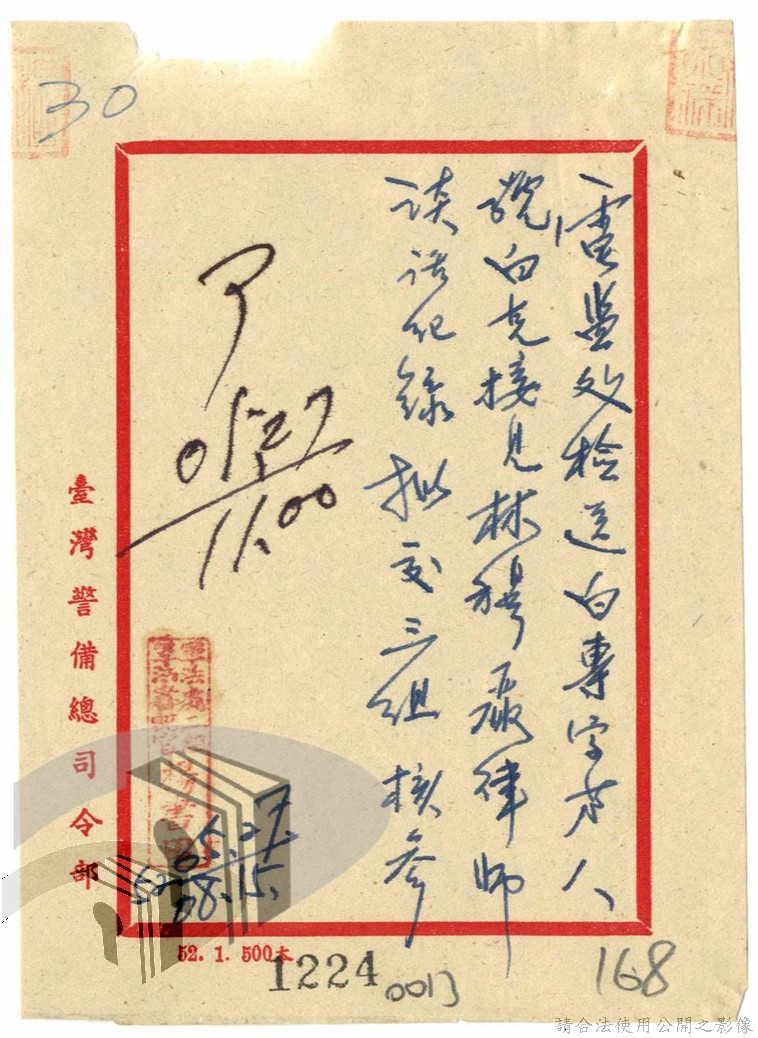 30
監処檢送白專字第八
號白克接見林穆律師
談話紀錄擬交三組核參
05.27
11.00
5.27
08.15.
臺灣警備總司令部
52. 1. 500本
1224
168
請合法使用公開之影像